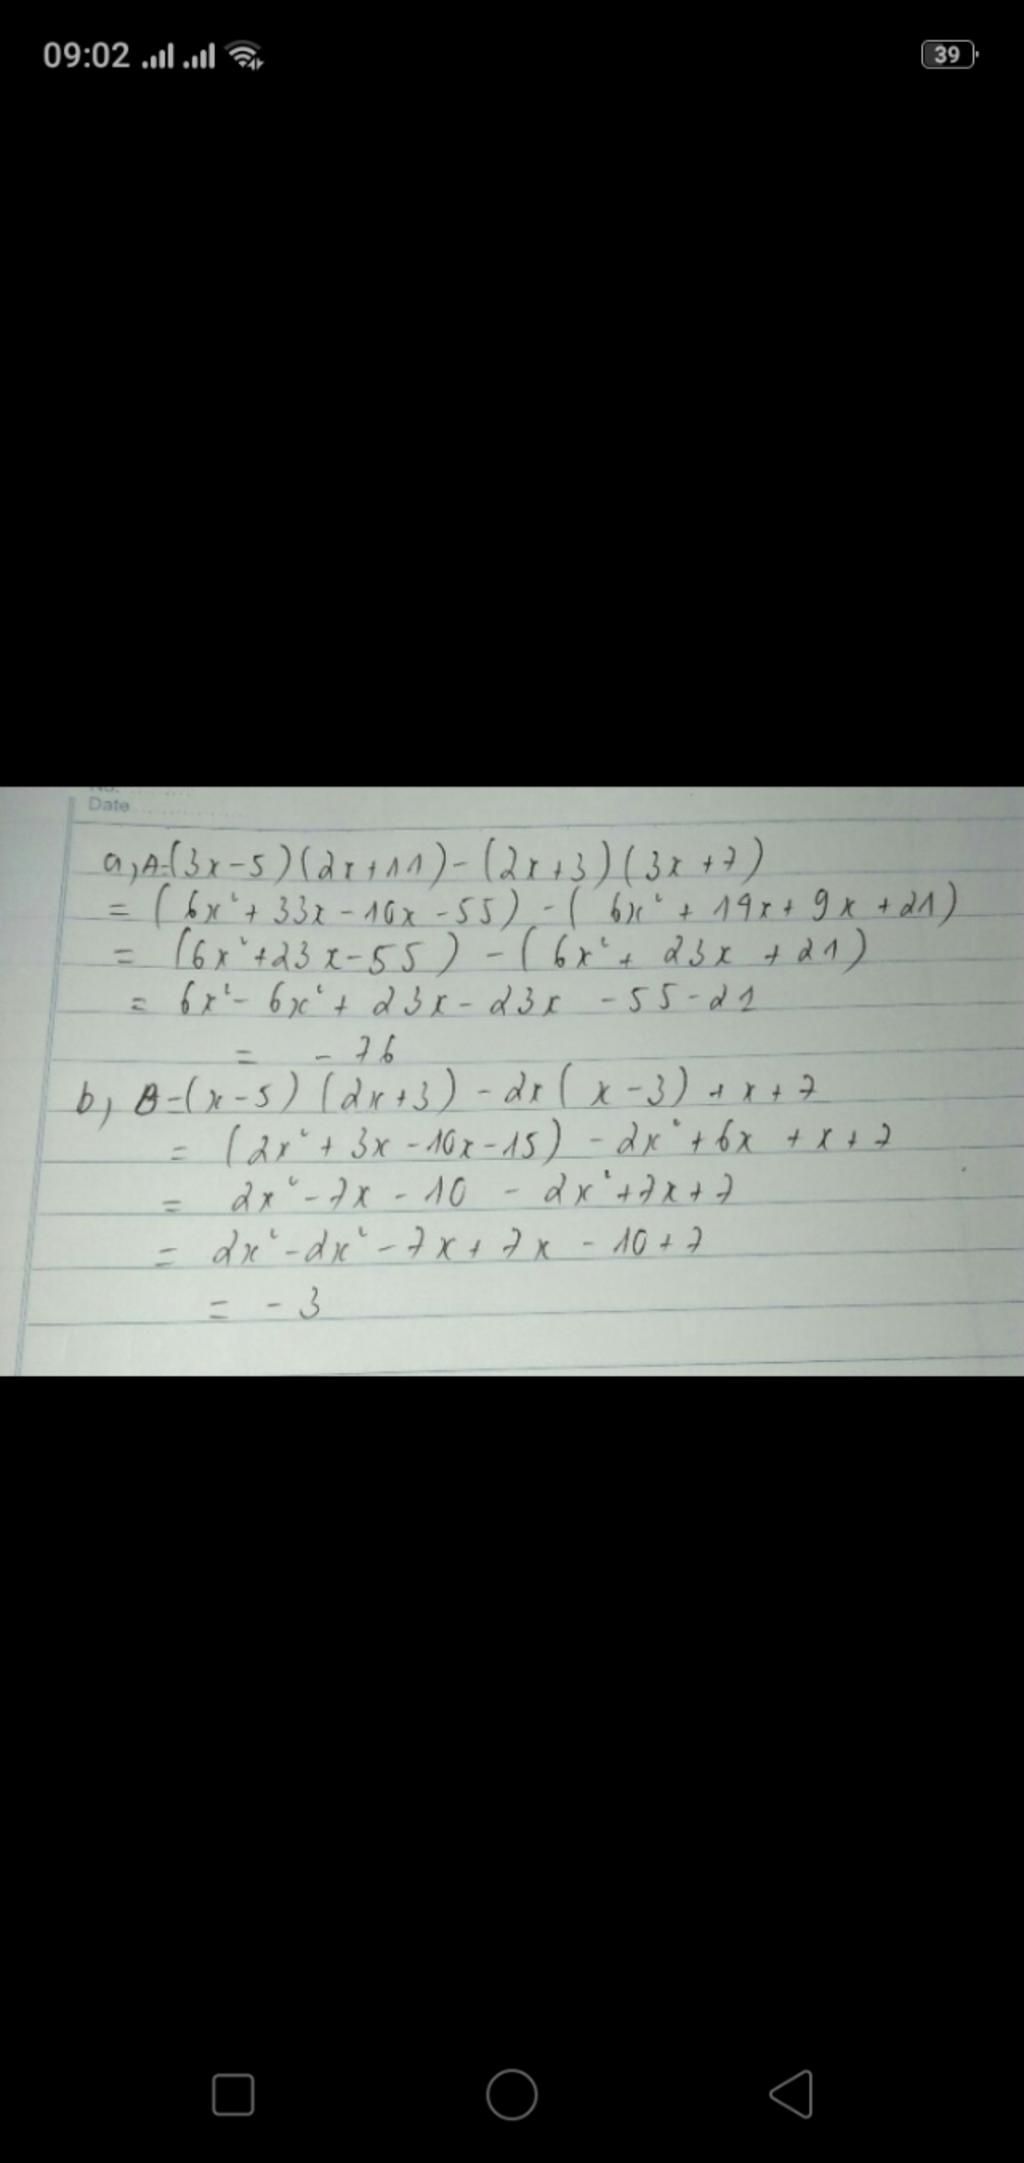 09:02
39
No.
Date
a, A=(3x-5)(2x+11)-(2x+3)(3x+7)
= (6x²+33x-10x-55)-(6x²+14x+9x+21)
= (6x²+23x-55)-(6x²+23x+21)
= 6x²-6x²+23x-23x-55-21
= -76
b, B=(x-5)(2x+3)-2x(x-3)+x+7
= (2x²+3x-10x-15)-2x²+6x+x+7
= 2x²-7x-10-2x²+7x+7
= 2x²-2x²-7x+7x-10+7
= -3